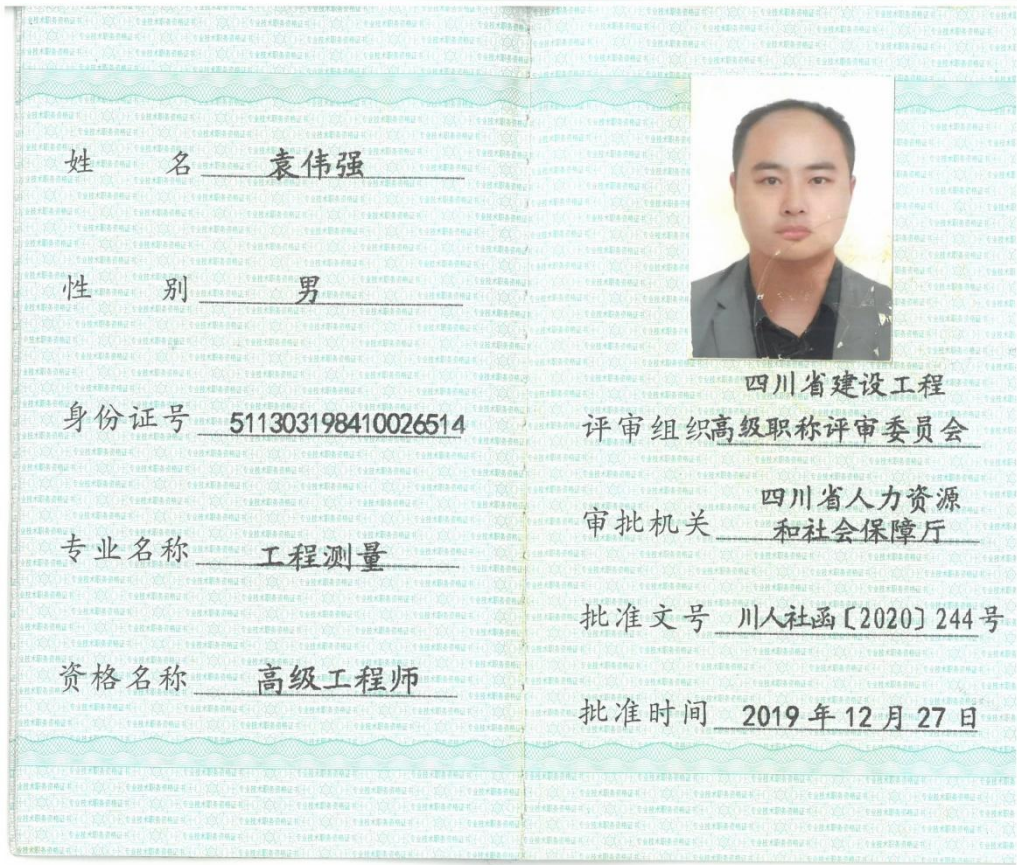 姓名 袁伟强
性别 男
身份证号 511303198410026514
专业名称 工程测量
资格名称 高级工程师
四川省建设工程
评审组织 高级职称评审委员会
四川省人力资源
审批机关 和社会保障厅
批准文号 川人社函〔2020〕244号
批准时间 2019年12月27日